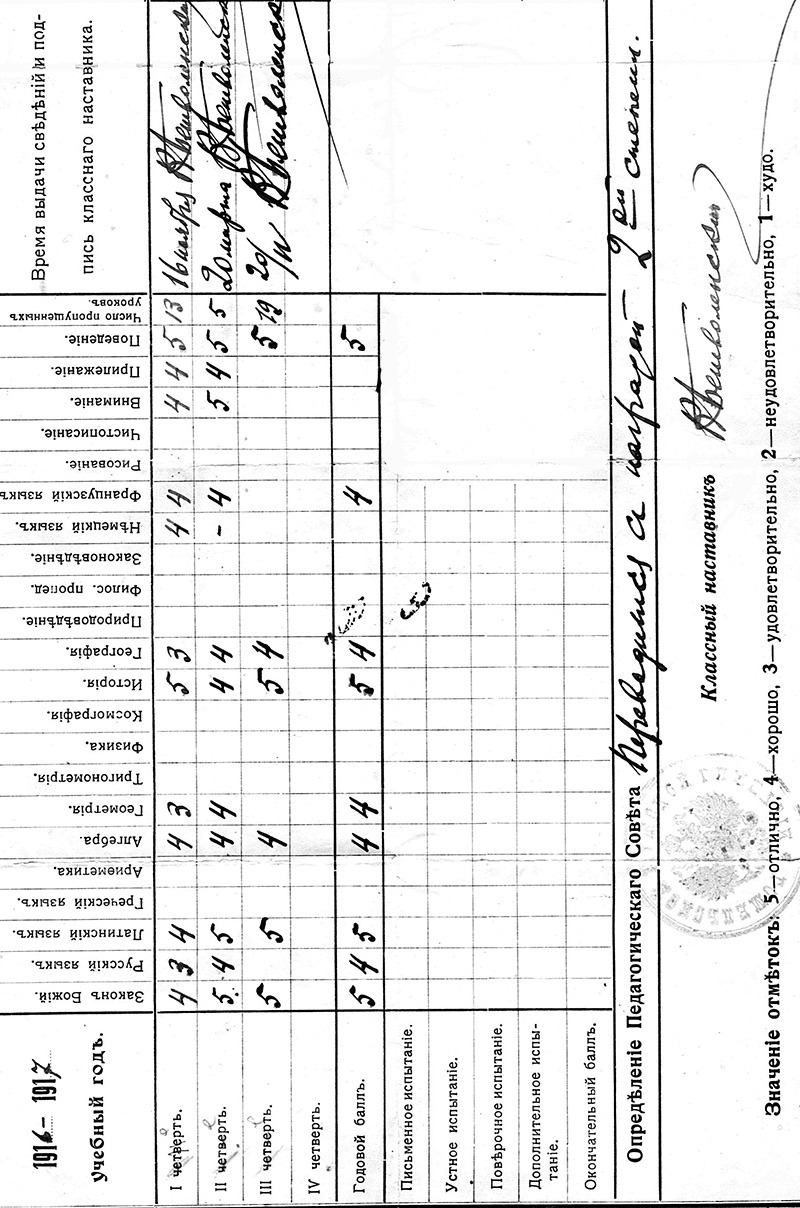 1916–1917
учебный годъ.
Законъ Божій.
Русскій языкъ.
Латинскій языкъ.
Греческій языкъ.
Ариѳметика.
Алгебра.
Геометрія.
Тригонометрія.
Физика.
Космографія.
Исторія.
Географія.
Природовѣдѣніе.
Филос. пропед.
Законовѣдѣніе.
Нѣмецкій языкъ.
Французскій языкъ.
Рисованіе.
Чистописаніе.
Вниманіе.
Прилежаніе.
Поведеніе.
Число пропущенныхъ
уроковъ.
Время выдачи свѣдѣній и под-
пись класснаго наставника.
I четверть. 4 3 4 4 3 5 3 4 4 4 4 5 13 16 ноября
II четверть. 5 4 5 4 4 4 4 - 4 5 4 5 5 20 марта
III четверть. 5 5 4 5 4 5 19 20/IV
IV четверть.
Годовой баллъ. 5 4 5 4 4 5 4 4 5
Письменное испытаніе.
Устное испытаніе.
Повѣрочное испытаніе.
Дополнительное испы-
таніе.
Окончательный баллъ.
Опредѣленіе Педагогическаго Совѣта Переводится с наградой 2ой степени.
Классный наставникъ
Значеніе отмѣтокъ: 5—отлично, 4—хорошо, 3—удовлетворительно, 2—неудовлетворительно, 1—худо.